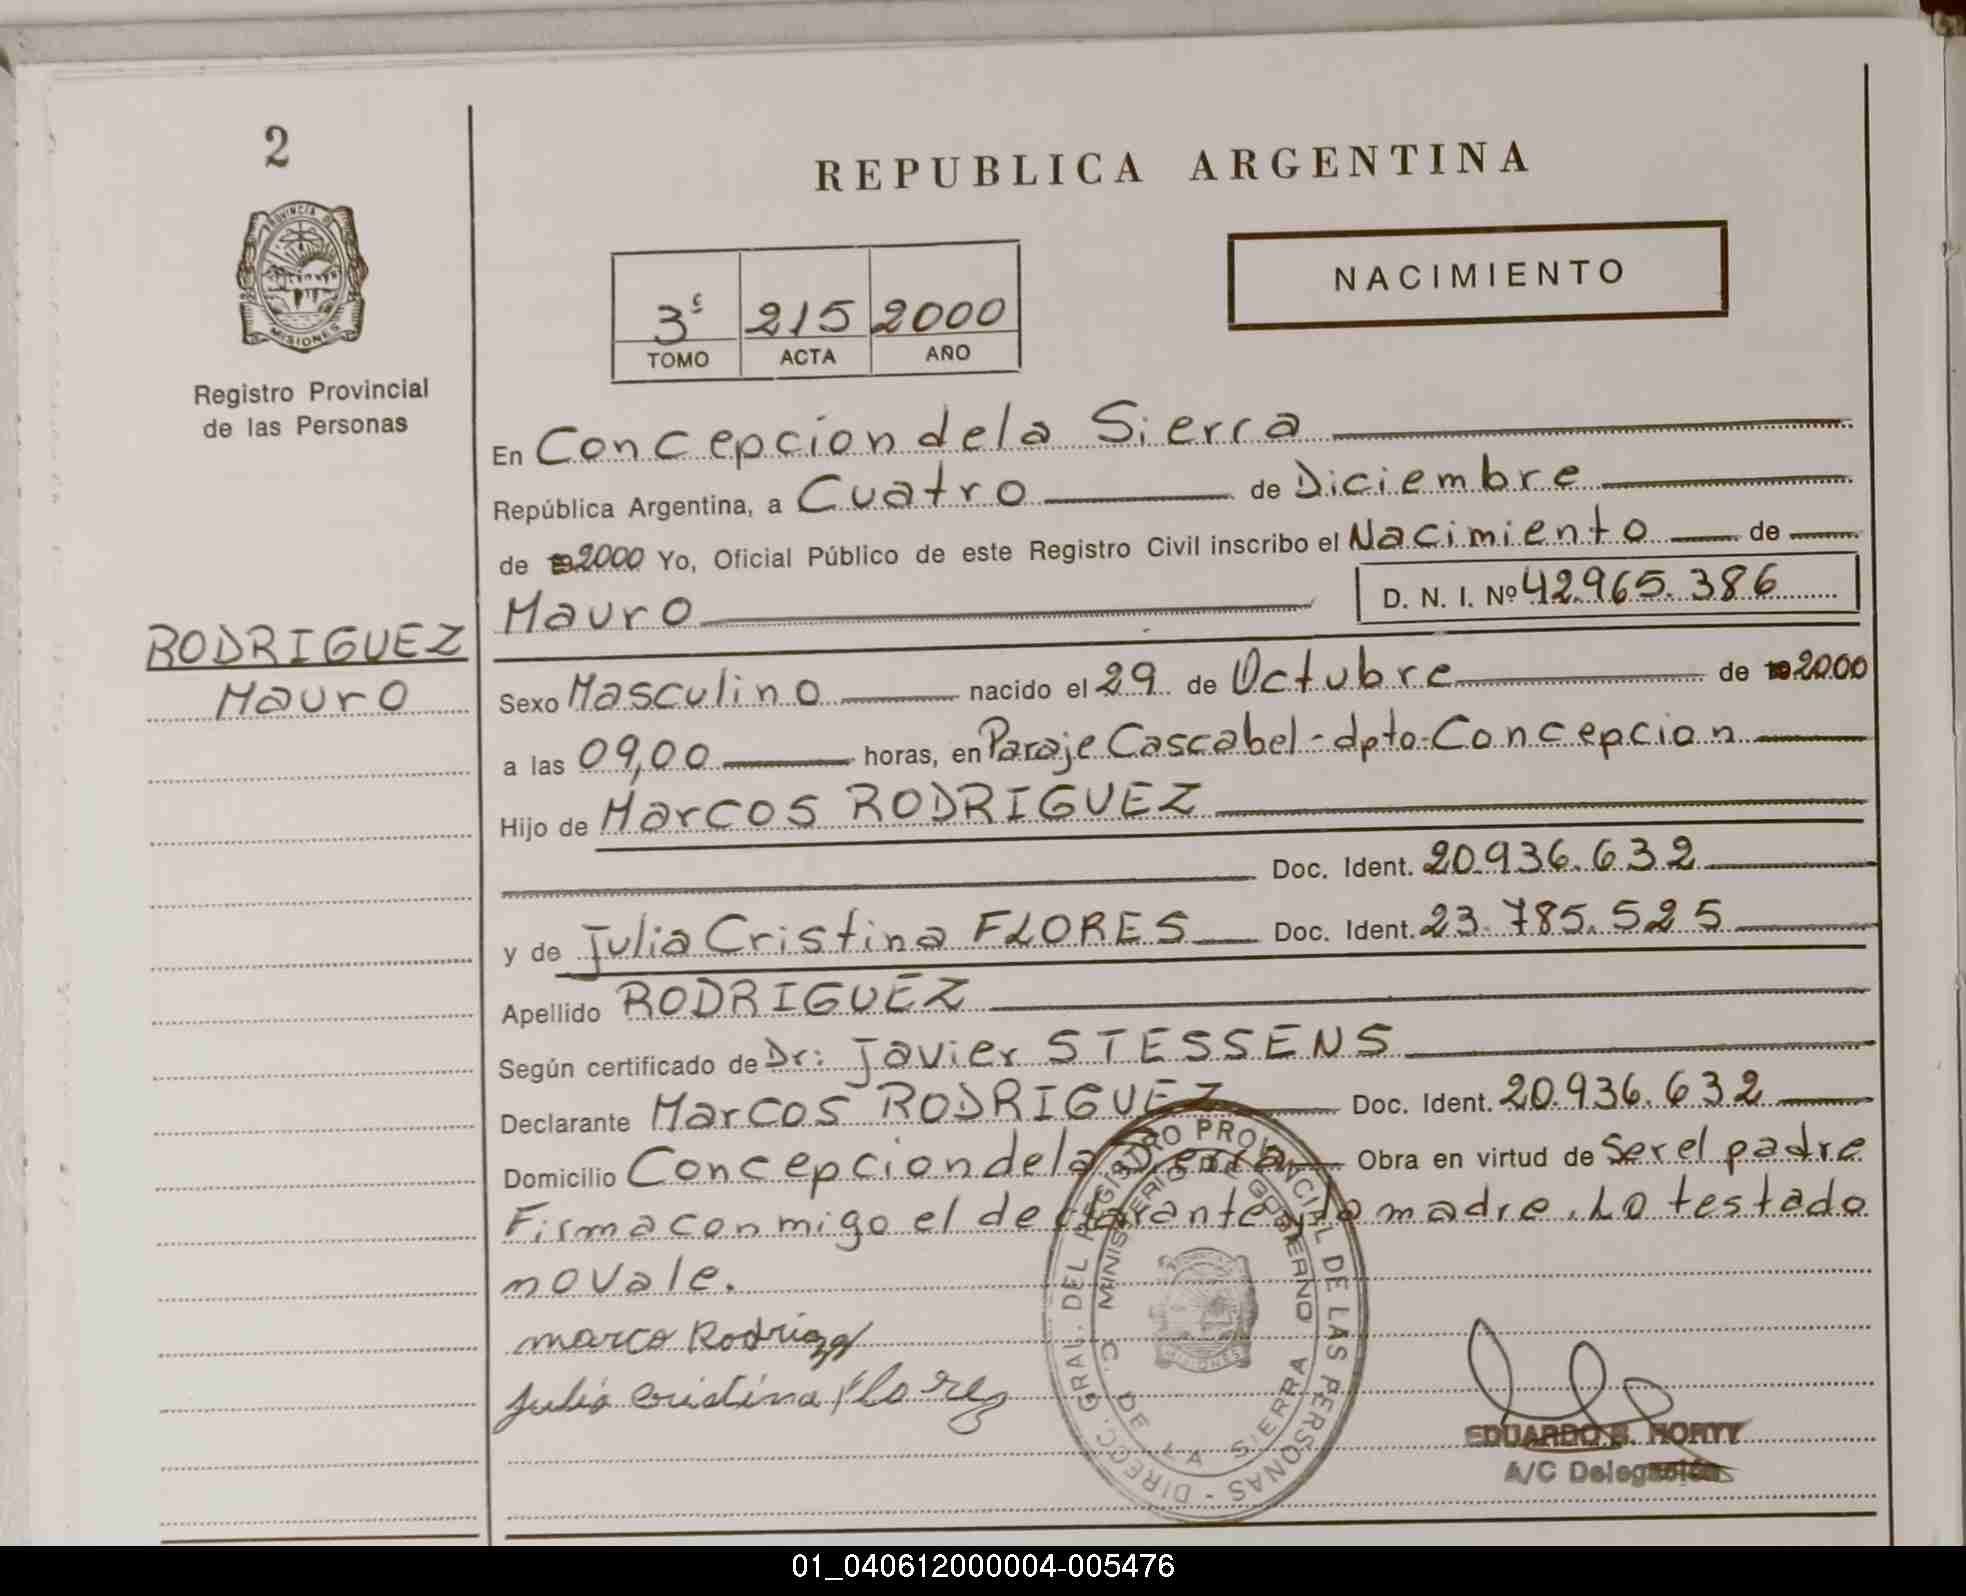 2
PROVINCIA DE
MISIONES
Registro Provincial
de las Personas
RODRIGUEZ
Mauro
REPUBLICA ARGENTINA
3º 215 2000
TOMO ACTA AÑO
NACIMIENTO
En Concepcion de la Sierra
República Argentina, a Cuatro de Diciembre
de 2000 Yo, Oficial Público de este Registro Civil inscribo el Nacimiento de
Mauro D. N. I. Nº 42.965.386
Sexo Masculino nacido el 29 de Octubre de 2000
a las 09,00 horas, en Paraje Cascabel - dpto. Concepcion
Hijo de Marcos RODRIGUEZ
Doc. Ident. 20.936.632
y de Julia Cristina FLORES Doc. Ident. 23.785.525
Apellido RODRIGUEZ
Según certificado de Dr: Javier STESSENS
Declarante Marcos RODRIGUEZ Doc. Ident. 20.936.632
Domicilio Concepcion de la Sierra Obra en virtud de Ser el padre
Firma conmigo el declarante y la madre. Lo testado
no vale.
marco Rodrigz
Julia Cristina Flores
DIRECC. GRAL. DEL REGISTRO PROVINCIAL DE LAS PERSONAS -
MINISTERIO DE GOBIERNO
C. DE LA SIERRA
MISIONES
EDUARDO
A/C Delegación
01_040612000004-005476